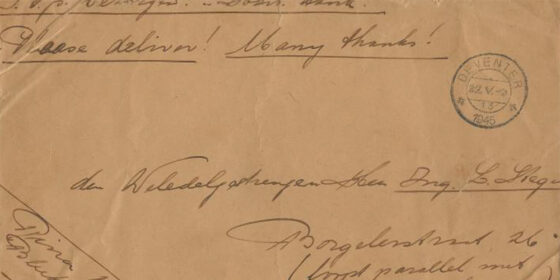 S.v.p.
Please deliver! Many thanks!
DEVENTER
22.V.
13
1945
den Weledelgestrengen Heer Ing. L.
Borgelerstraat 26
loopt parallel met
Rina